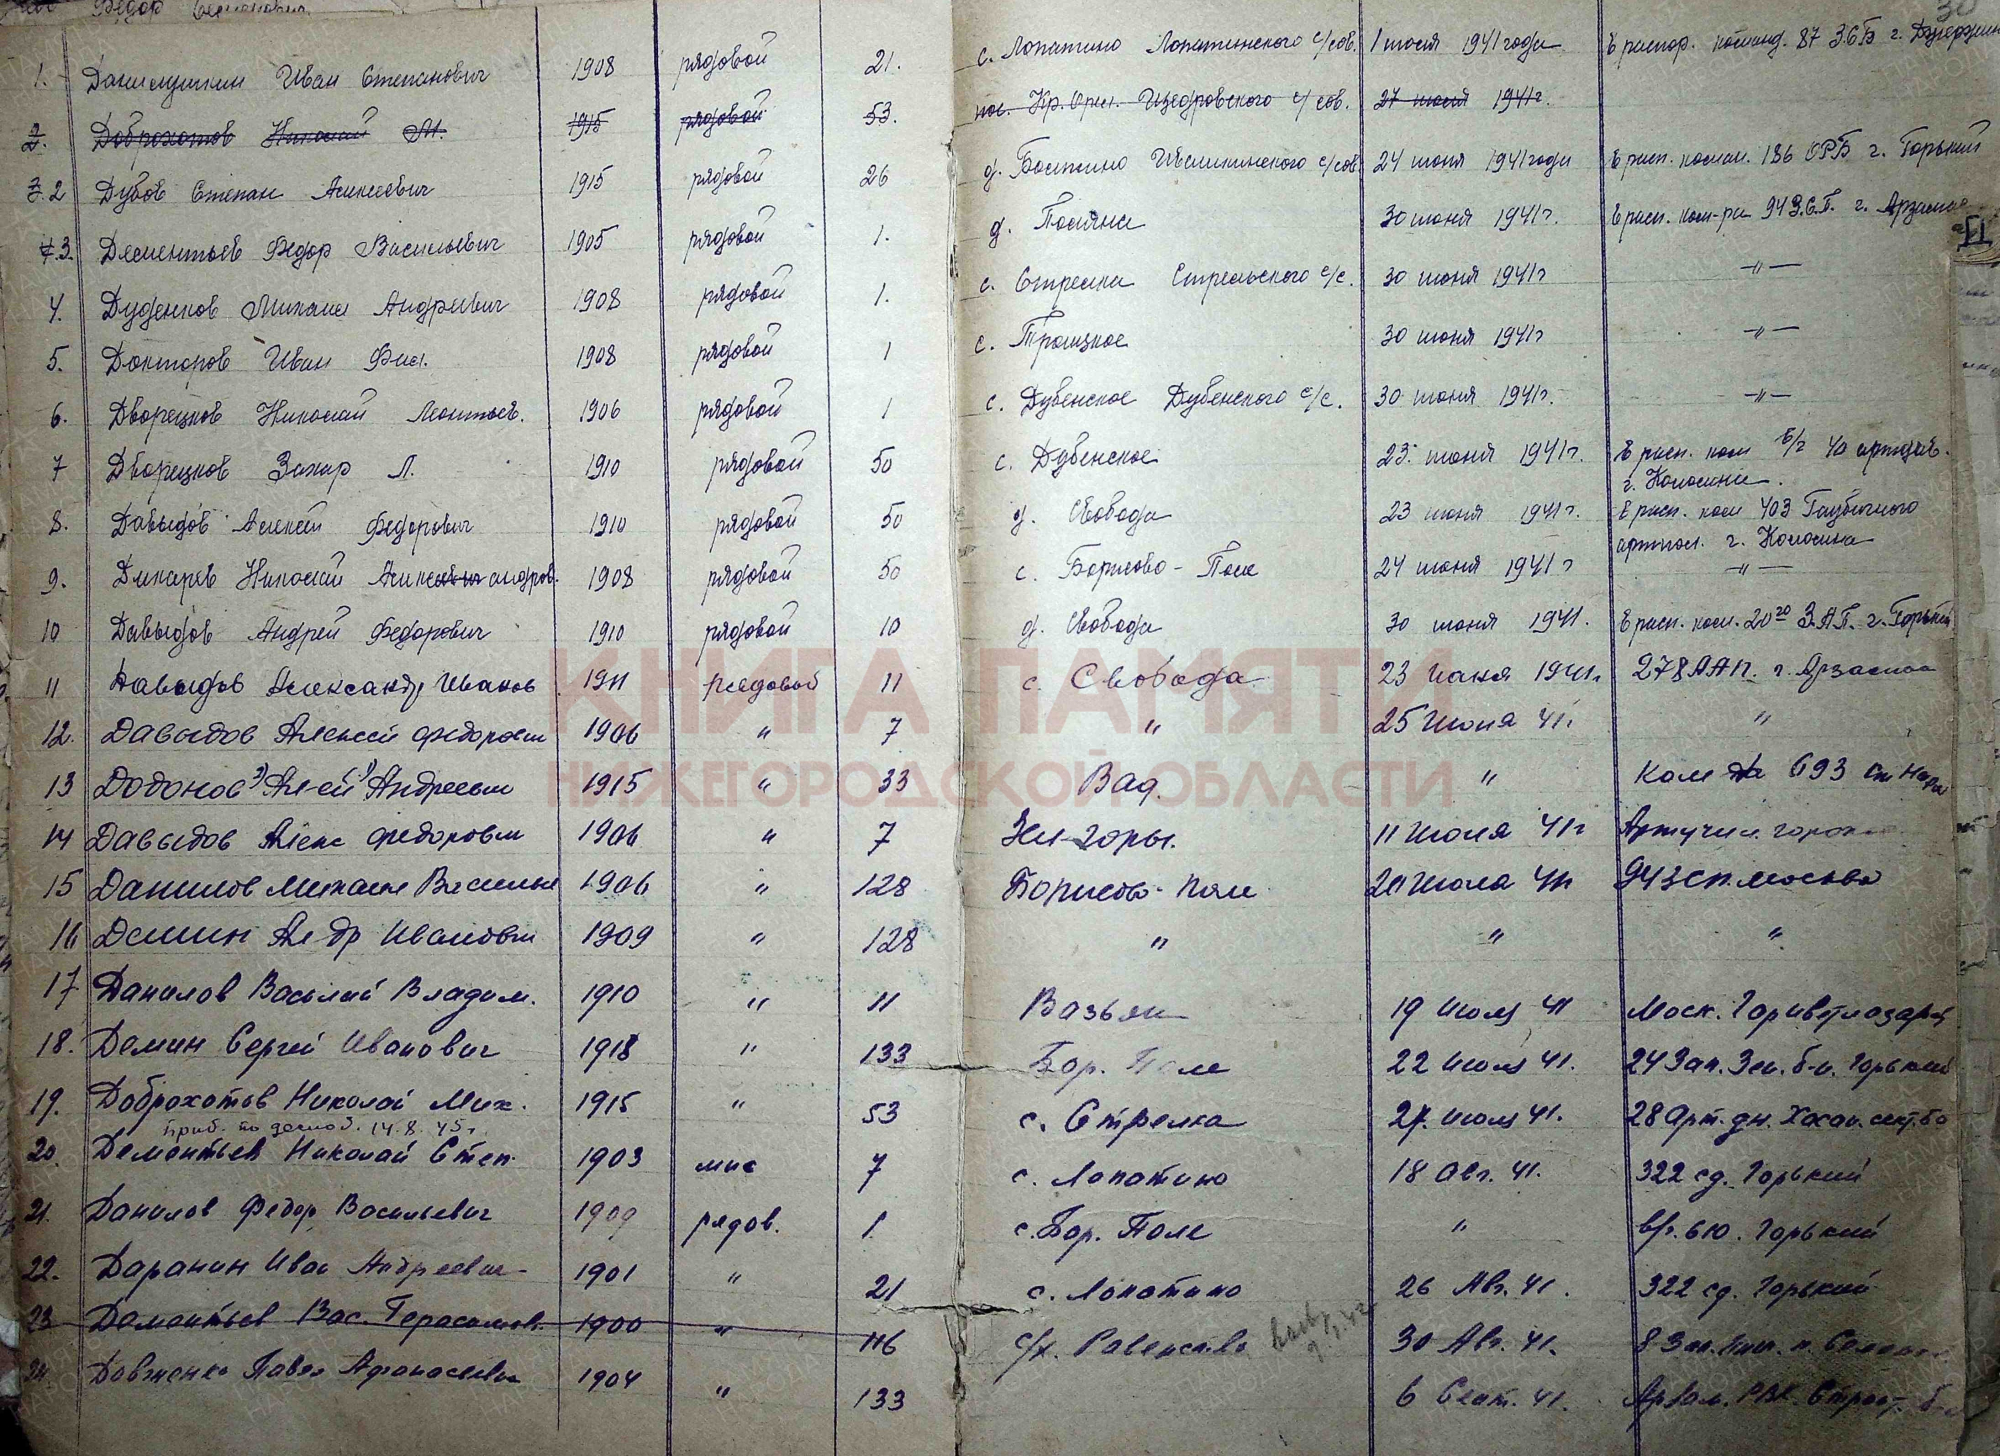 Федор
30
1. Данилушкин Иван Степанович 1908 рядовой 21. с. Лопатино Лопатинского с/сов. 1 июля 1941 года В распор. команд. 87 ЗСБ г. Дзержинс
2. Доброхотов Николай М. 1915 рядовой 53. пос. Кр. Орел. с/сов. 27 июля 1941г.
3. 2 Дубов Степан Алексеевич 1915 рядовой 26 д. с/сов 24 июня 1941 года В расп. коман. 136 ОРБ г. Горький
4. 3. Дементьев Федор Васильевич 1905 рядовой 1. д. Поляна 30 июня 1941г. В расп. ком-ра 94 З.С.П. г. Арзамас
4. Дуденков Михаил Андреевич 1908 рядовой 1. с. Стрелка Стрельского с/с. 30 июня 1941г —"—
5. Докторов Иван Фил. 1908 рядовой 1 с. Троицкое 30 июня 1941г —"—
6. Дворецков Николай Леонтьев. 1906 рядовой 1 с. Дубенское Дубенского с/с. 30 июня 1941г. —"—
7 Дворецков Захар Л. 1910 рядовой 50 с. Дубенское 23 июня 1941г. В расп. ком в/ч 40
г. Коломна.
8. Давыдов Алексей Федорович 1910 рядовой 50 д. Свобода 23 июня 1941г. В расп. ком 403 Гаубичного
артпол. г. Коломна
9. Дикарев Николай Александров. 1908 рядовой 50 с. Борисово-Поле 24 июня 1941г —"—
10 Давыдов Андрей Федорович 1910 рядовой 10 д. Свобода 30 июня 1941. В расп. ком. 20го З.А.П. г. Горький
11 Давыдов Александр Иванов 1911 рядовой 11 с. Свобода 23 июня 1941г 278 ААП. г. Арзамас
12. Давыдов Алексей Федорович 1906 " 7 " 25 Июня 41г. "
13 Додонов Ал-ей Андреевич 1915 " 33 Вад. " 693
14 Давыдов Алекс Федорович 1906 " 7 Зел-Горы. 11 Июля 41г
15 Данилов Михаил Василье 1906 " 128 Борисово-Поле 20 Июля 41г 94 ЗСП. Москва
16 Демин Ал-др Иванович 1909 " 128 " " "
17 Данилов Василий Владим. 1910 " 11 Вазьян 19 Июля 41 Моск.
18. Демин Сергей Иванович 1918 " 133 Бор. Поле 22 Июля 41. 24 Зап. Зен. б-н. Горький
19. Доброхотов Николай Мих. 1915 " 53 с. Стрелка 27. июля 41. 28 Арт. дн.
Приб. по демоб. 14.8.45г.
20. Дементьев Николай Степ. 1903 мнс 7 с. Лопатино 18 Авг. 41. 322 сд. Горький
21. Данилов Федор Васильевич 1909 рядов. 1 с. Бор. Поле " в/ч. 610. Горький
22. Даранин Иван Андреевич 1901 " 21 с. Лопатино 26 Авг. 41. 322 сд. Горький
23 Дементьев Вас. Герасимов. 1900 " 116 с/х. Равенство 30 Авг. 41. 8 Зап.
24. Довженко Павел Афанасьевич 1904 " 133 6 Сент. 41. Арзам. РВК. Строит. б-н
КНИГА ПАМЯТИ
НИЖЕГОРОДСКОЙ ОБЛАСТИ